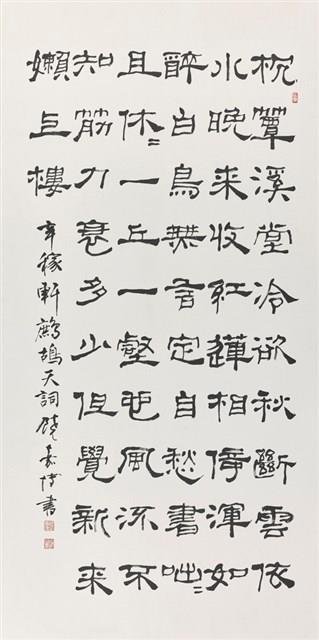 枕簟溪堂冷欲秋斷雲依
水晚來收紅蓮相倚渾如
醉白鳥無言定自愁書咄〻
且休〻一丘一壑也風流不
知筋力衰多少但覺新来
嬾上樓
辛稼軒鷓鴣天詞 書